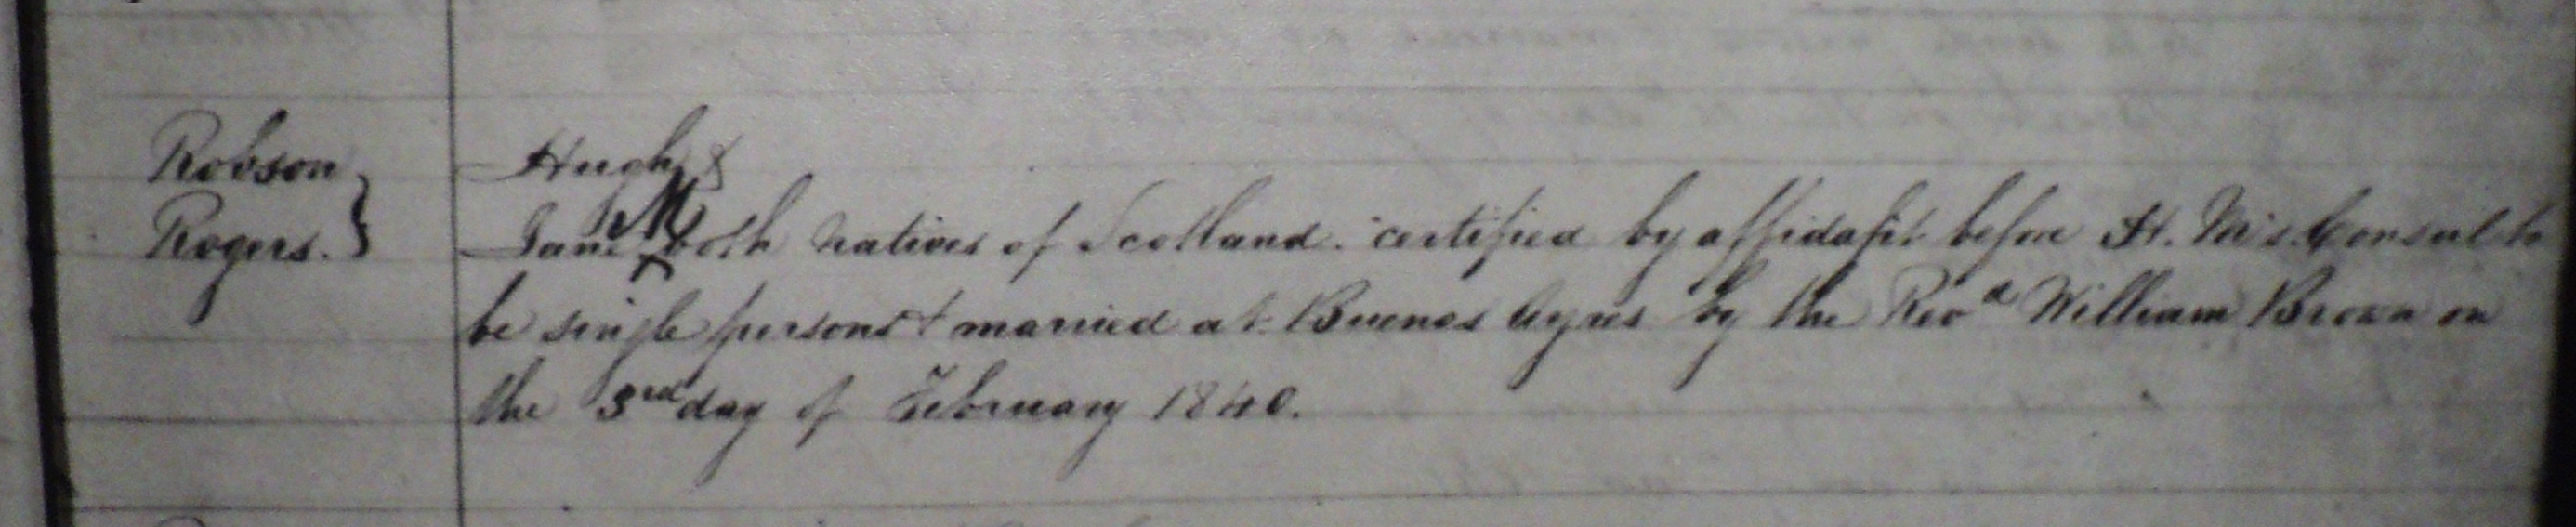 Robson } Hugh &
Rogers. } Jane M both natives of Scotland. certified by affidafit before H. M's. Consul to
be single persons & married at Buenos Ayres by the Revd William Brown on
the 3rd day of February 1840.